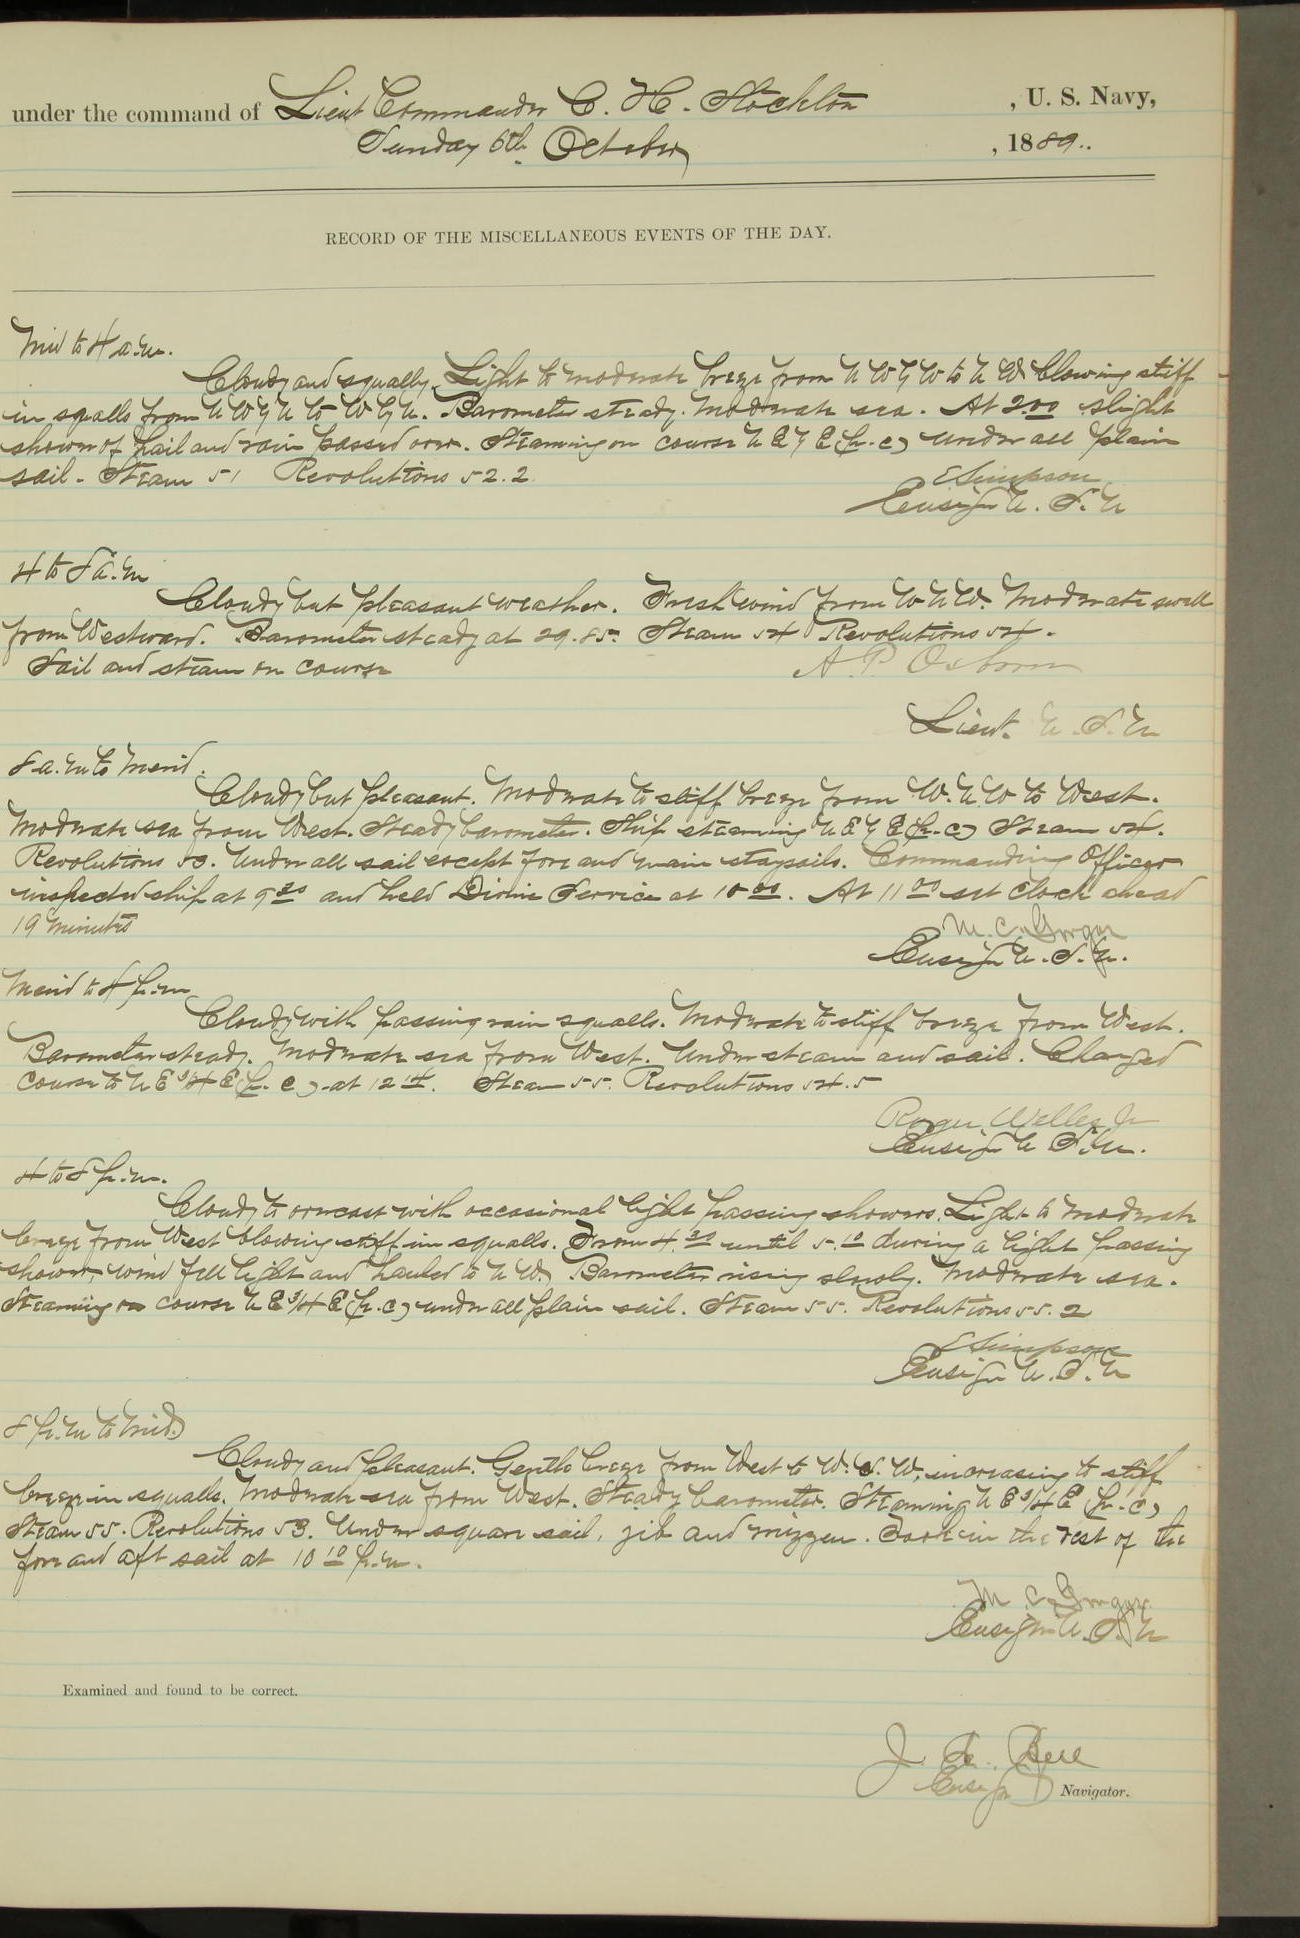 under the command of Lieut Commander C. H. Stockton, U. S. Navy,
Sunday 6th October, 1889.
RECORD OF THE MISCELLANEOUS EVENTS OF THE DAY.
Mid to 4 a.m.
Cloudy and squally. Light to moderate breeze from N W by W to N W blowing stiff
in squalls from N W by N to W by N. Barometer steady. Moderate sea. At 2.00 slight
shower of hail and rain passed over. Steaming on course N E by E (p.c) under all plain
sail. Steam 51 Revolutions 52.2
E Simpson
Ensign U. S. N
4 to 8 a.m
Cloudy but pleasant weather. Fresh wind from W N W. Moderate swell
from Westward. Barometer steady at 29.85. Steam 54 Revolutions 54.
Sail and steam on course
A. P. Osborn
Lieut. U. S. N
8 a.m to Merid.
Cloudy but pleasant. Moderate to stiff breeze from W. N W to West.
Moderate sea from West. Steady barometer. Ship steaming N E by E (p.c) Steam 54.
Revolutions 53. Under all sail except fore and main staysails. Commanding Officer
inspected ship at 9 30 and held Divine Service at 10 00. At 11 00 set clock ahead
19 minutes
M. C. Gorgas
Ensign U. S. N.
Merid to 4 p.m
Cloudy with passing rain squalls. Moderate to stiff breeze from West.
Barometer steady. Moderate sea from West. Under steam and sail. Changed
course to N E 3/4 E (p. c) at 12 14. Steam 55. Revolutions 54.5
Roger Welles Jr
Ensign U S. N.
4 to 8 p.m.
Cloudy to overcast with occasional light passing showers. Light to moderate
breeze from West blowing stiff in squalls. From 4.30 until 5.10 during a light passing
shower, wind fell light and hauled to N W. Barometer rising slowly. Moderate sea.
Steaming on course N E 3/4 E (p. c) under all plain sail. Steam 55. Revolutions 55.2
E Simpson
Ensign U. S. N
8 p.m to Mid.
Cloudy and pleasant. Gentle breeze from West to W. S. W, increasing to stiff
breeze in squalls. Moderate sea from West. Steady barometer. Steaming N E 3/4 E (p. c)
Steam 55. Revolutions 53. Under square sail, jib and mizzen. Took in the rest of the
fore and aft sail at 10 10 p.m.
M. C. Gorgas
Ensign U. S. N
Examined and found to be correct.
Bell
Ensign Navigator.